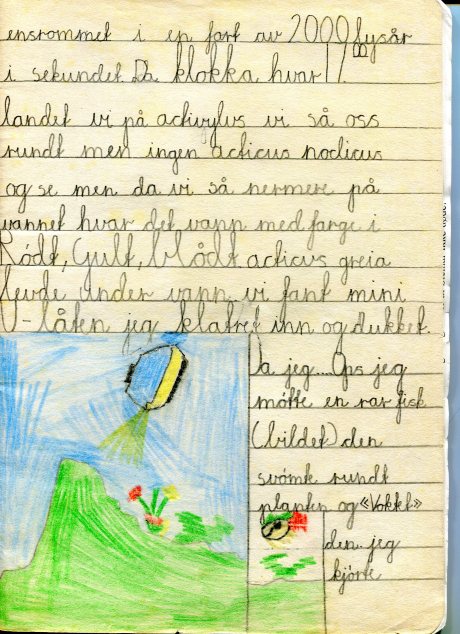 ensrommet i en fart av 2000 lysår
i sekundet. Da klokka hvar 11⁰⁰
landet vi på activylus vi så oss
rundt men ingen acticus noclicus
og se men da vi så nermere på
vannet hvar det vann med farge i
Rödt, Gult, blådt acticus greia
levde under vann. vi fant mini
U-låten jeg klatret inn og dukket.
Da jeg.... Ops jeg
mötte en rar fisk
(bildet) den
svömte rundt
planten og «Voktet»
den. jeg
kjörte